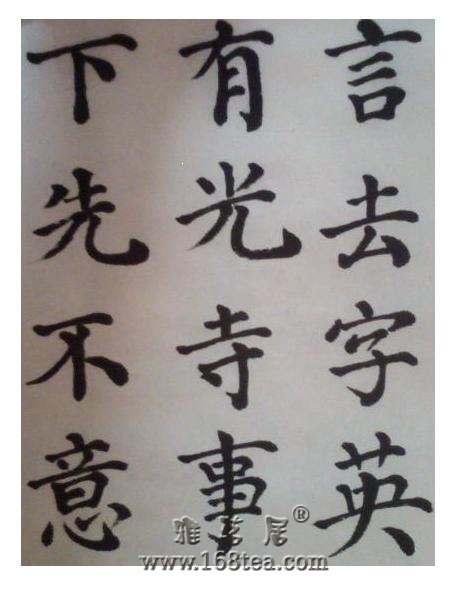 言去字英
有光寺事
下先不意
雅茗居®
www.168tea.com